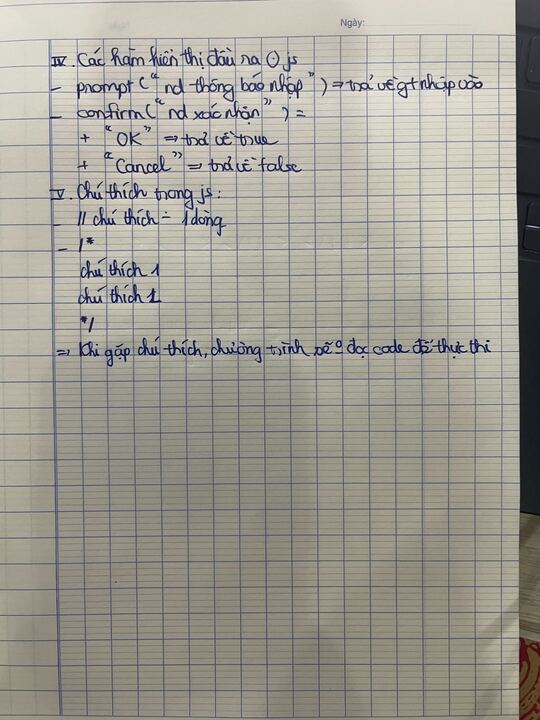 Ngày:
IV. Các hàm hiển thị đầu ra () js
- prompt ("nd thông báo nhập") => trả về gt nhập vào
- confirm ("nd xác nhận") =
+ "OK" => trả về true
+ "Cancel" => trả về false
V. Chú thích trong js:
- // chú thích ÷ 1 dòng
- /*
chú thích 1
chú thích 2
*/
=> Khi gặp chú thích, chương trình sẽ 0 đọc code để thực thi